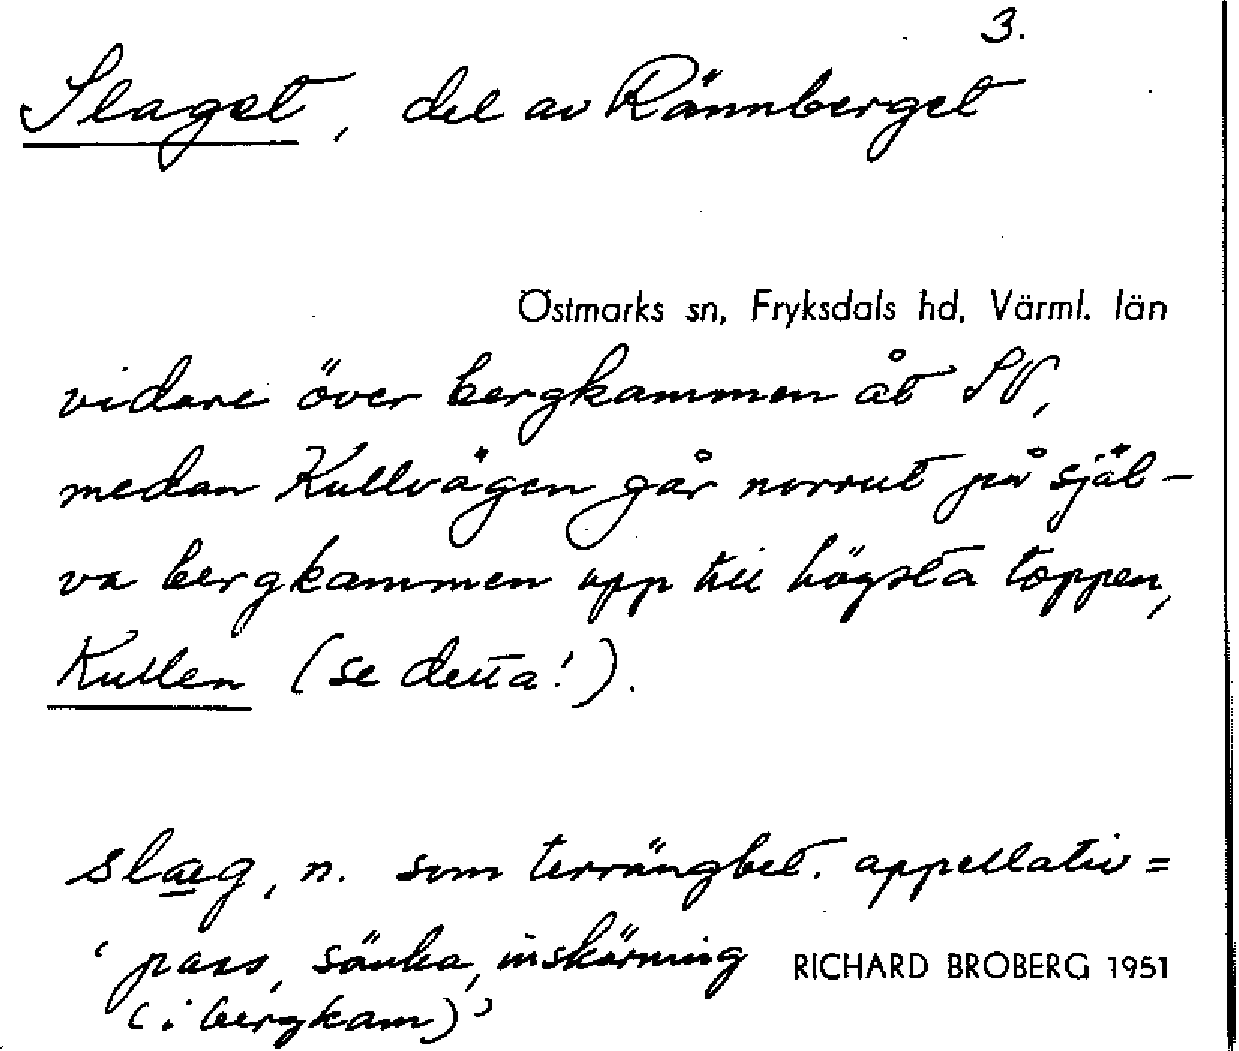 3.
Slaget, del av Rännberget
Östmarks sn, Fryksdals hd, Värml. län
vidare över bergkammen åt SV,
medan Kullvägen går norrut på själ-
va bergkammen upp till högsta toppen,
Kullen (se detta!).
slæg, n. som terrängbet. appellativ =
'pass, sänka, inskärning
RICHARD BROBERG 1951
(i bergkam)'